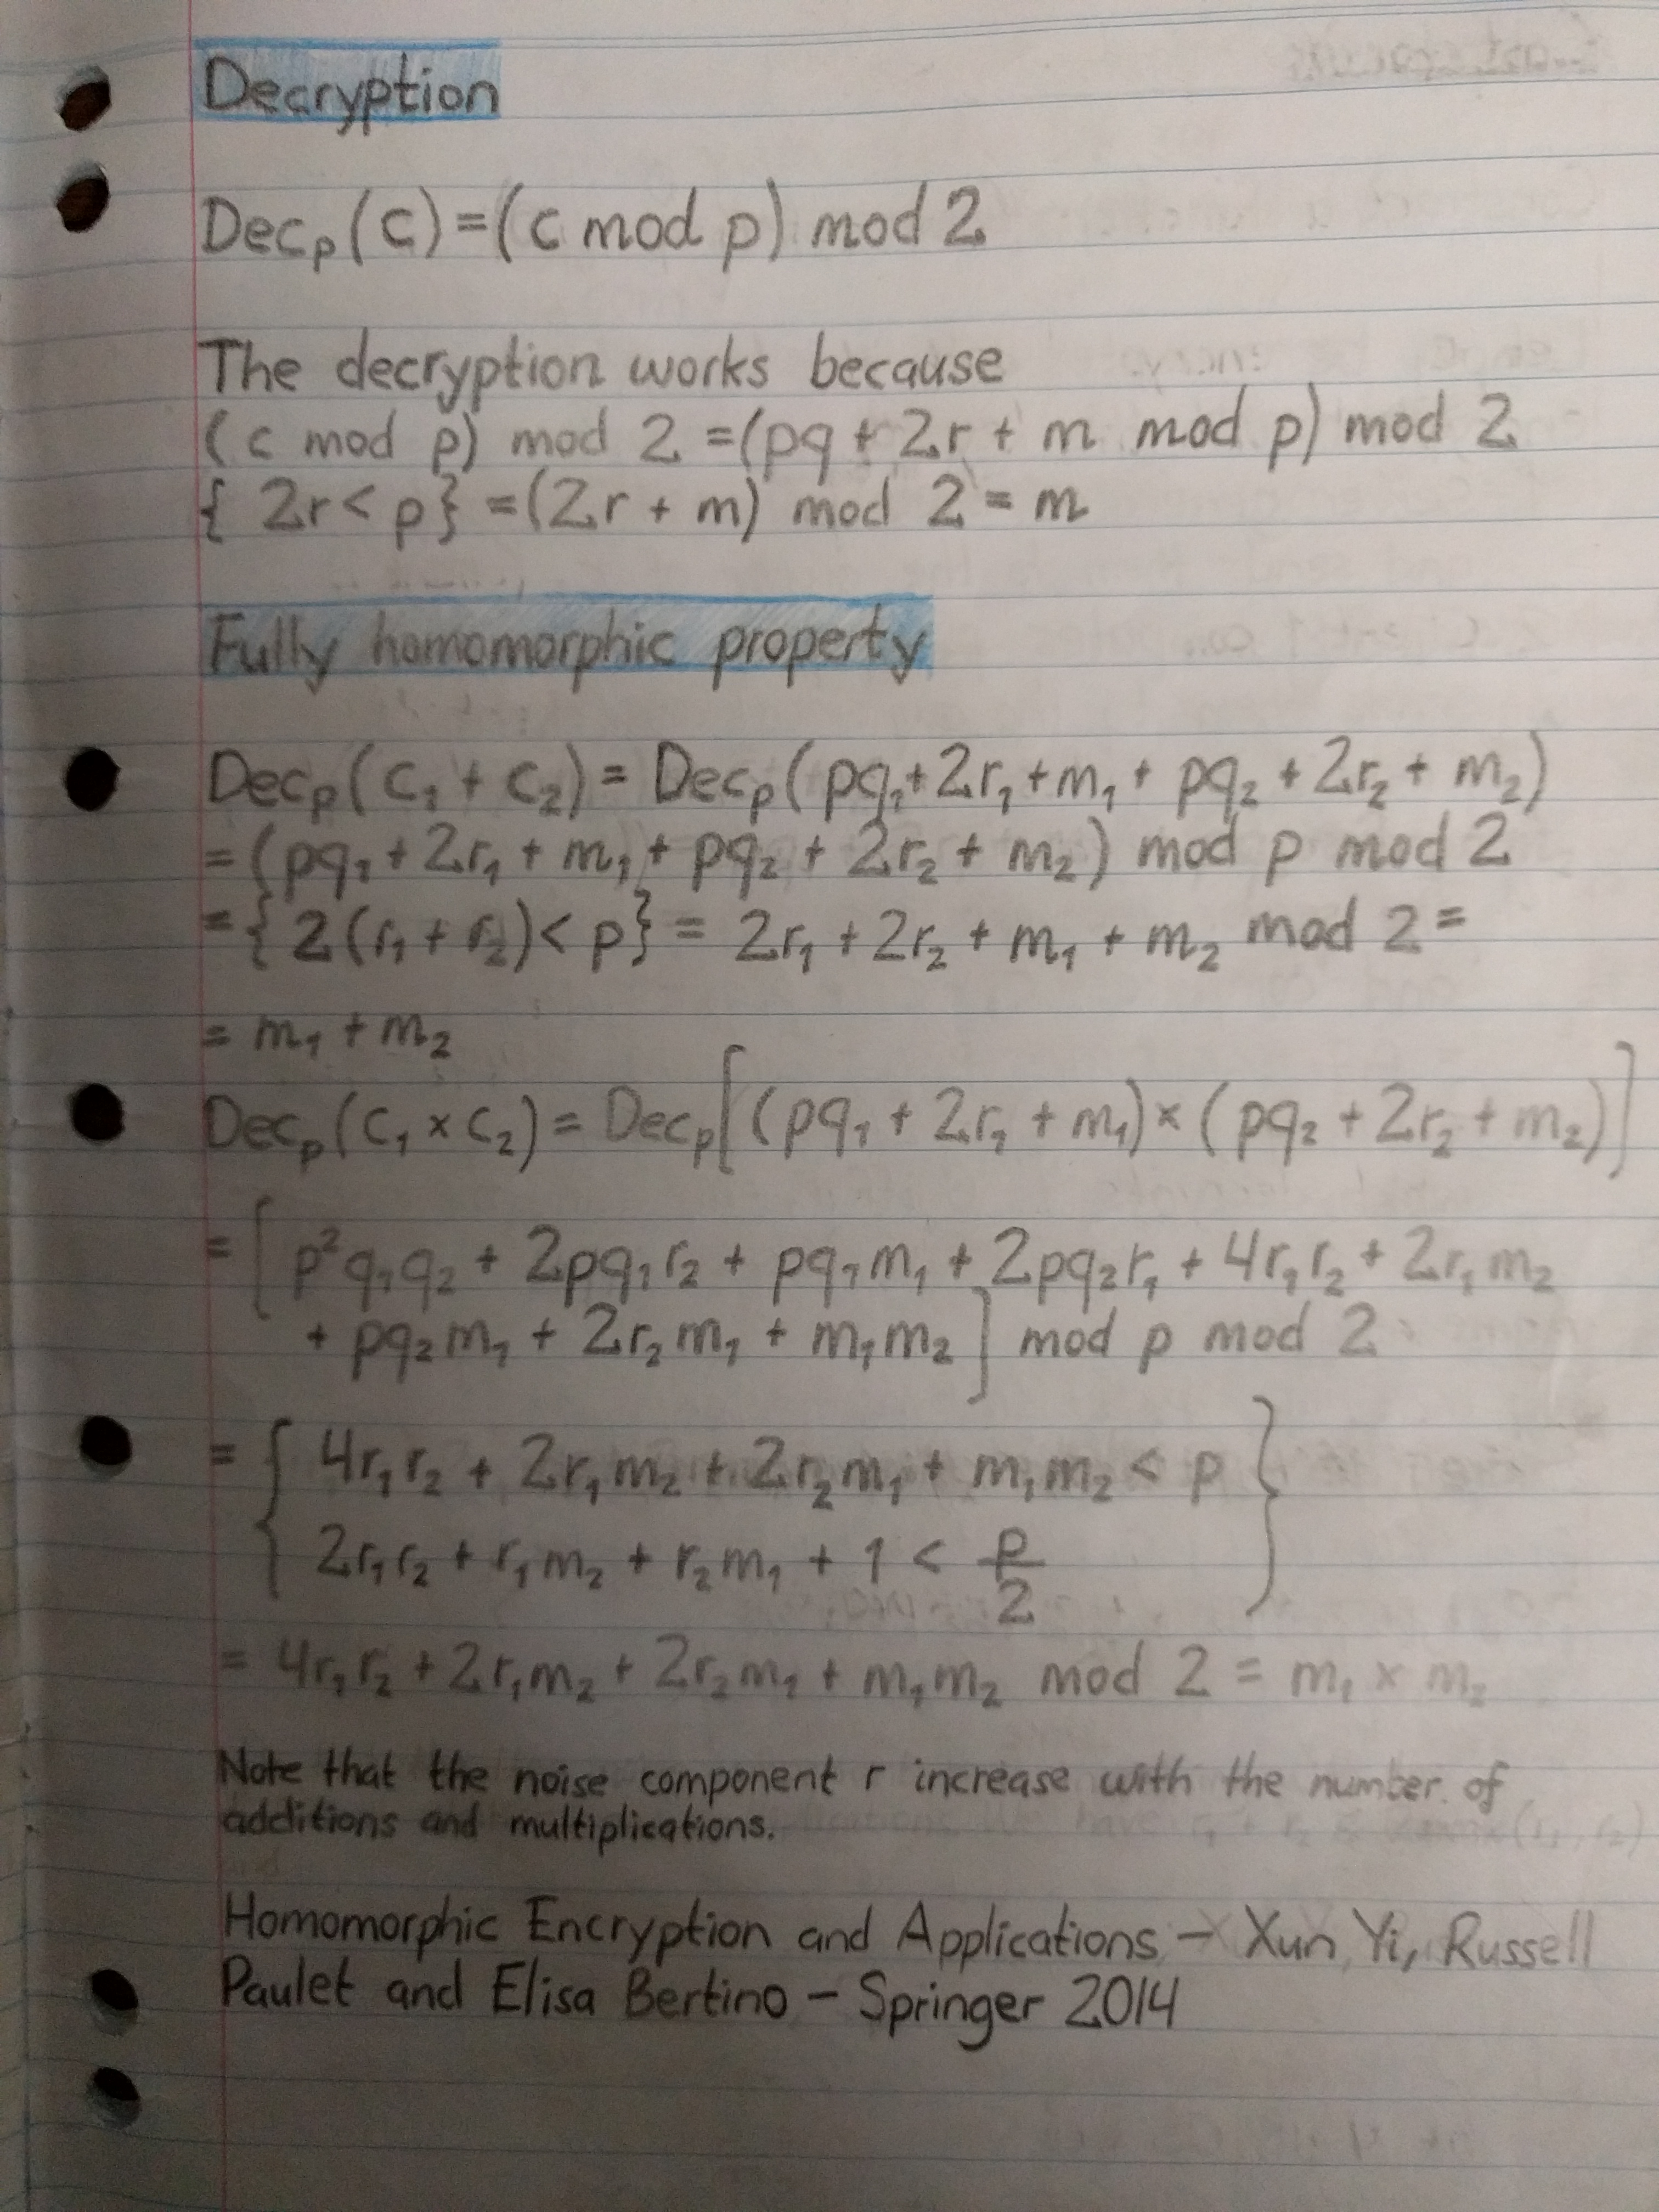 Decryption
Decₚ(c) = (c mod p) mod 2
The decryption works because
(c mod p) mod 2 = (pq + 2r + m mod p) mod 2
{ 2r < p } = (2r + m) mod 2 = m
Fully homomorphic property
Decₚ(c₁ + c₂) = Decₚ(pq₁ + 2r₁ + m₁ + pq₂ + 2r₂ + m₂)
= (pq₁ + 2r₁ + m₁ + pq₂ + 2r₂ + m₂) mod p mod 2
= { 2(r₁ + r₂) < p } = 2r₁ + 2r₂ + m₁ + m₂ mod 2 =
= m₁ + m₂
Decₚ(c₁ × c₂) = Decₚ[(pq₁ + 2r₁ + m₁) × (pq₂ + 2r₂ + m₂)]
= [ p²q₁q₂ + 2pq₁r₂ + pq₁m₁ + 2pq₂r₁ + 4r₁r₂ + 2r₁m₂
+ pq₂m₁ + 2r₂m₁ + m₁m₂ ] mod p mod 2
= { 4r₁r₂ + 2r₁m₂ + 2r₂m₁ + m₁m₂ < p }
2r₁r₂ + r₁m₂ + r₂m₁ + 1 < p/2
= 4r₁r₂ + 2r₁m₂ + 2r₂m₁ + m₁m₂ mod 2 = m₁ × m₂
Note that the noise component r increase with the number of
additions and multiplications.
Homomorphic Encryption and Applications – Xun Yi, Russell
Paulet and Elisa Bertino – Springer 2014